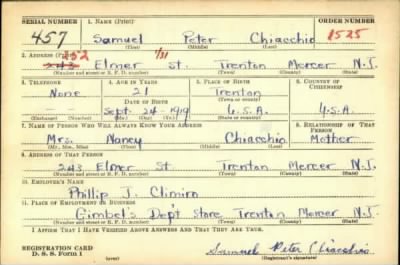 SERIAL NUMBER 1. NAME (Print) ORDER NUMBER
457 Samuel Peter Chiacchio 1525
(First) (Middle) (Last)
2. ADDRESS (Print)
252 1/31
243 Elmer St. Trenton Mercer N.J.
(Number and street or R. F. D. number) (Town) (County) (State)
3. TELEPHONE 4. AGE IN YEARS 5. PLACE OF BIRTH 6. COUNTRY OF CITIZENSHIP
None 21 Trenton
DATE OF BIRTH (Town or county)
-- Sept. 24-1919 U.S.A. U.S.A.
(Exchange) (Number) (Mo.) (Day) (Yr.) (State or country)
7. NAME OF PERSON WHO WILL ALWAYS KNOW YOUR ADDRESS 8. RELATIONSHIP OF THAT PERSON
Mrs. Nancy Chiacchio Mother
(Mr., Mrs., Miss) (First) (Middle) (Last)
9. ADDRESS OF THAT PERSON
243 Elmer St. Trenton Mercer N.J.
(Number and street or R. F. D. number) (Town) (County) (State)
10. EMPLOYER'S NAME
Phillip J. Climiro
11. PLACE OF EMPLOYMENT OR BUSINESS
Gimbel's Dep't Store Trenton Mercer N.J.
(Number and street or R. F. D. number) (Town) (County) (State)
I AFFIRM THAT I HAVE VERIFIED ABOVE ANSWERS AND THAT THEY ARE TRUE.
REGISTRATION CARD
D. S. S. Form 1 (over) Samuel Peter Chiacchio
(Registrant's signature)